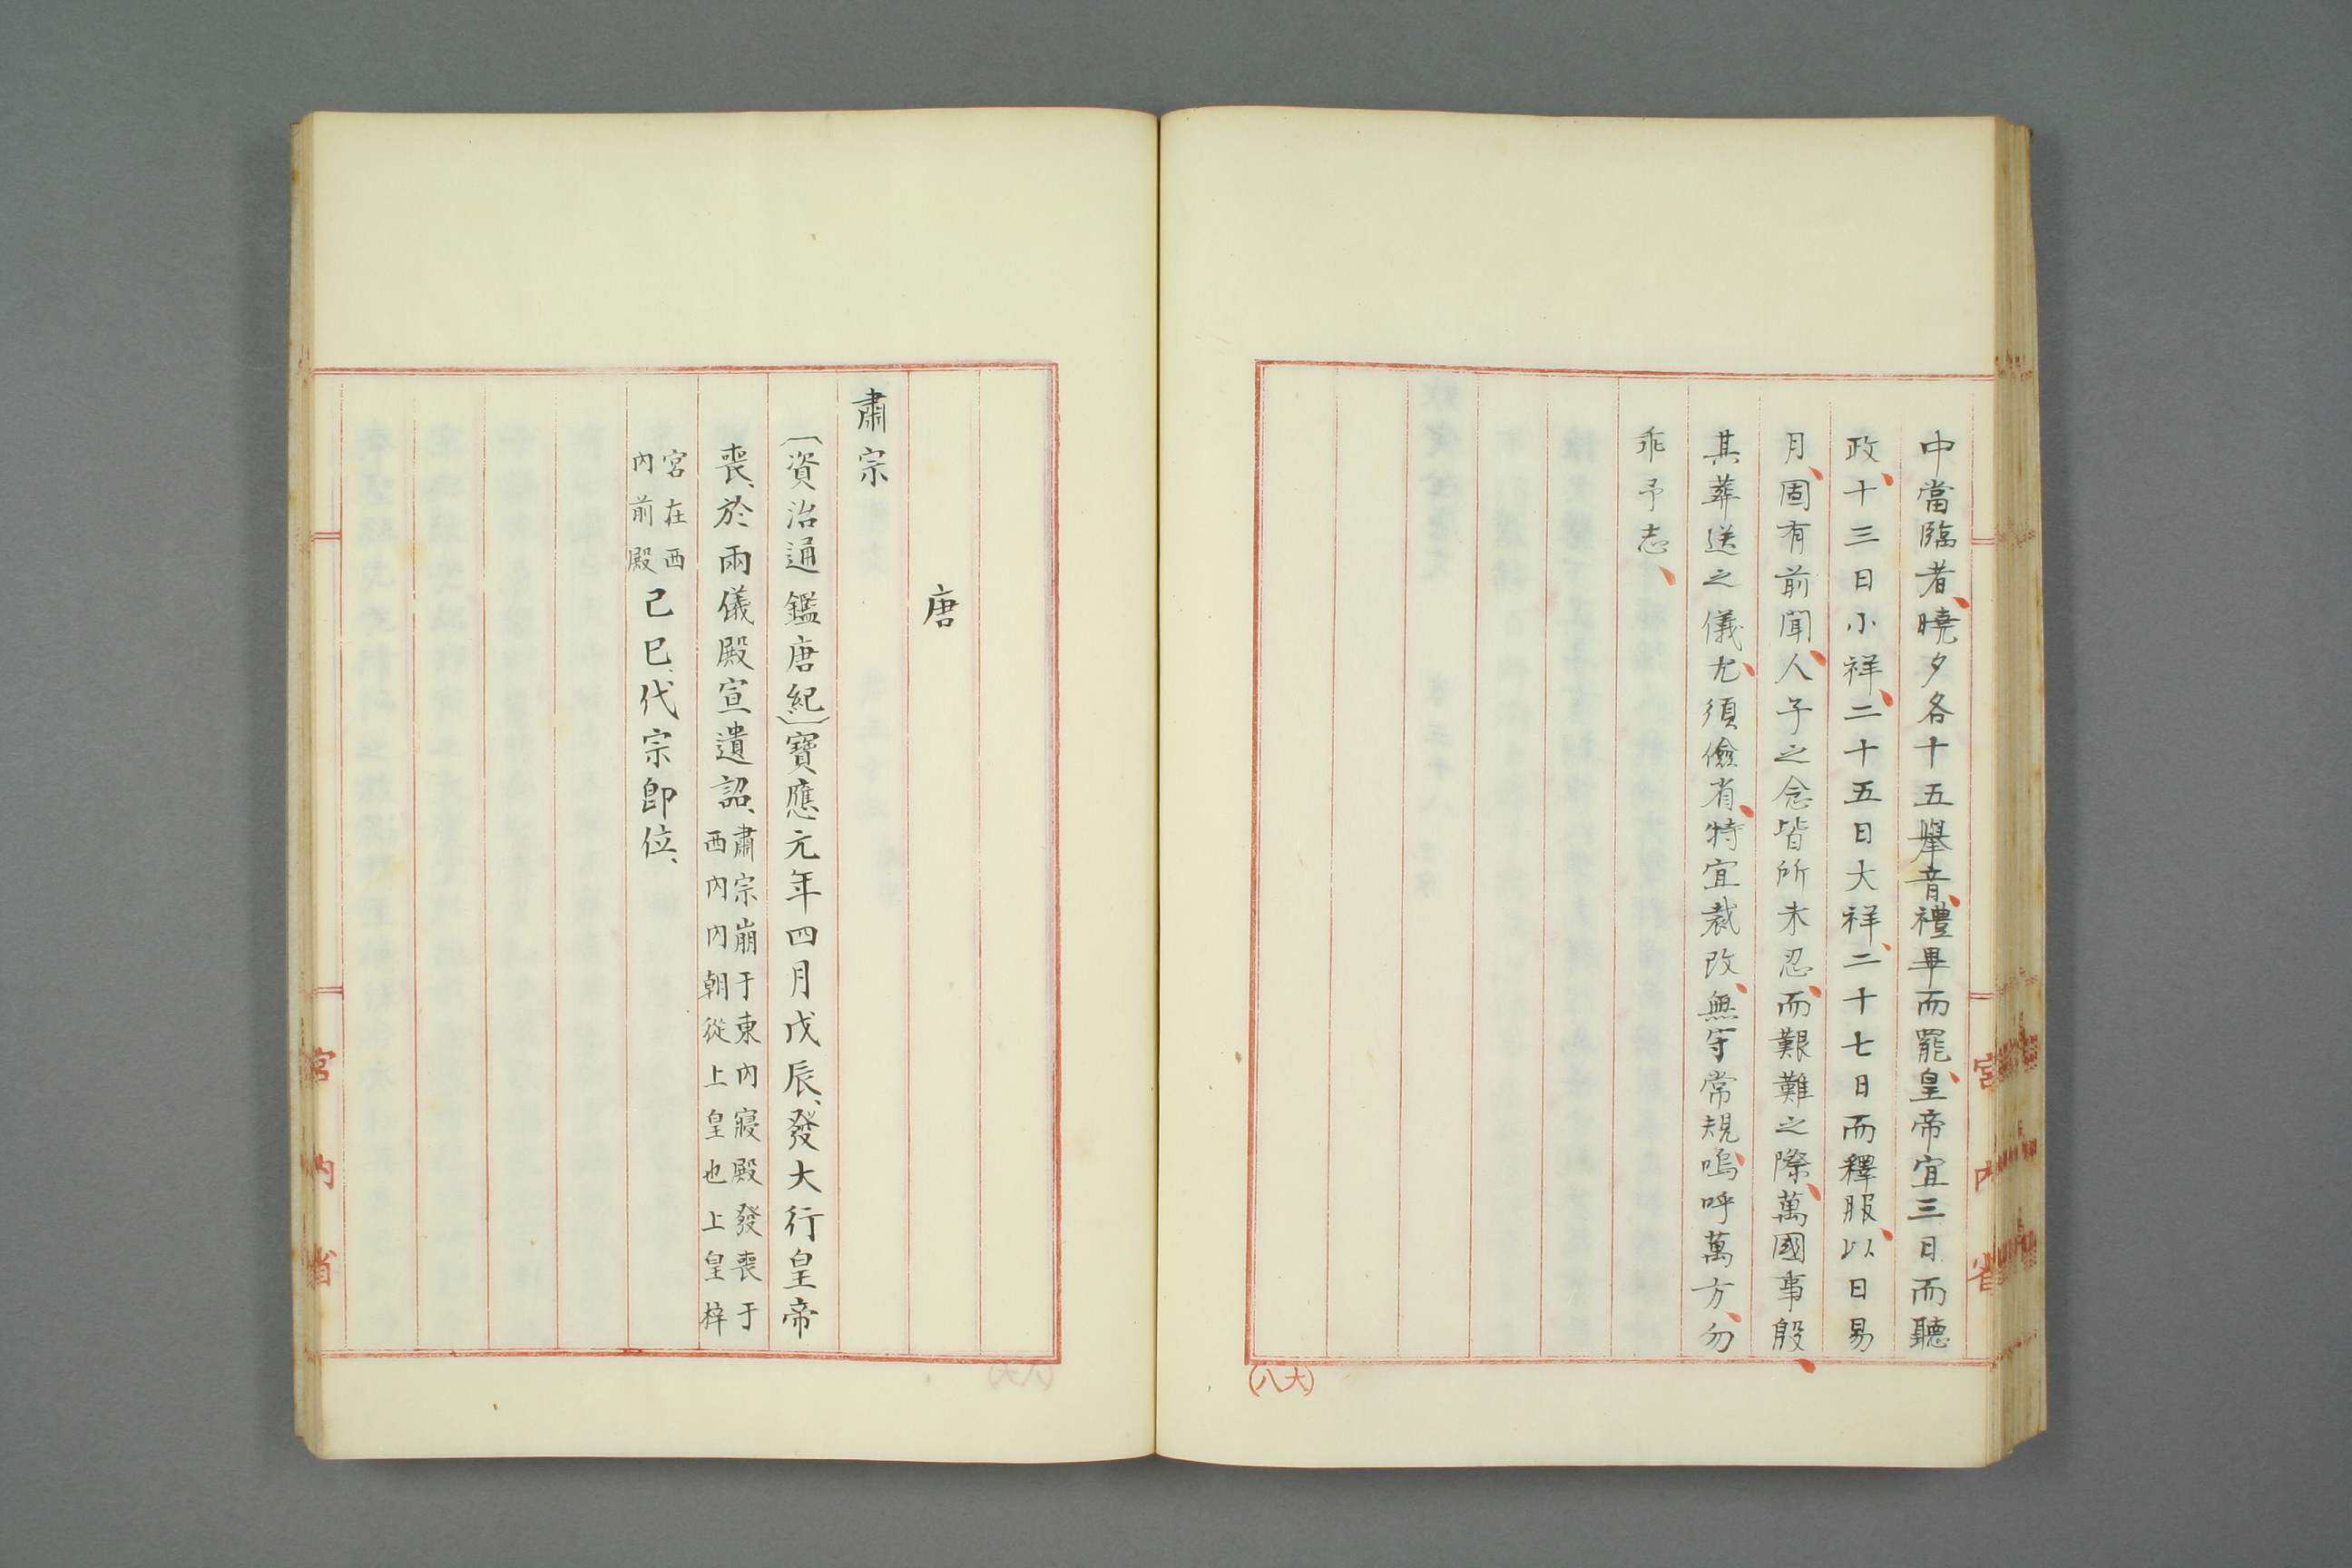 中當臨者、曉夕各十五擧音、禮畢而罷、皇帝宜三日而聽
政、十三日小祥、二十五日大祥、二十七日而釋服、以日易
月、固有前聞、人子之念皆所未忍、而艱難之際、萬國事殷、
其葬送之儀、尤須儉省、特宜裁改、無守常規、嗚呼萬方、勿
乖予志、
(大八)
宮內省
唐
肅宗
〔資治通鑑唐紀〕寶應元年四月戊辰、發大行皇帝
喪、於兩儀殿宣遺詔、
肅宗崩于東內寢殿發喪于
西內內朝從上皇也上皇梓
宮在西
內前殿
己巳、代宗卽位、
宮內省